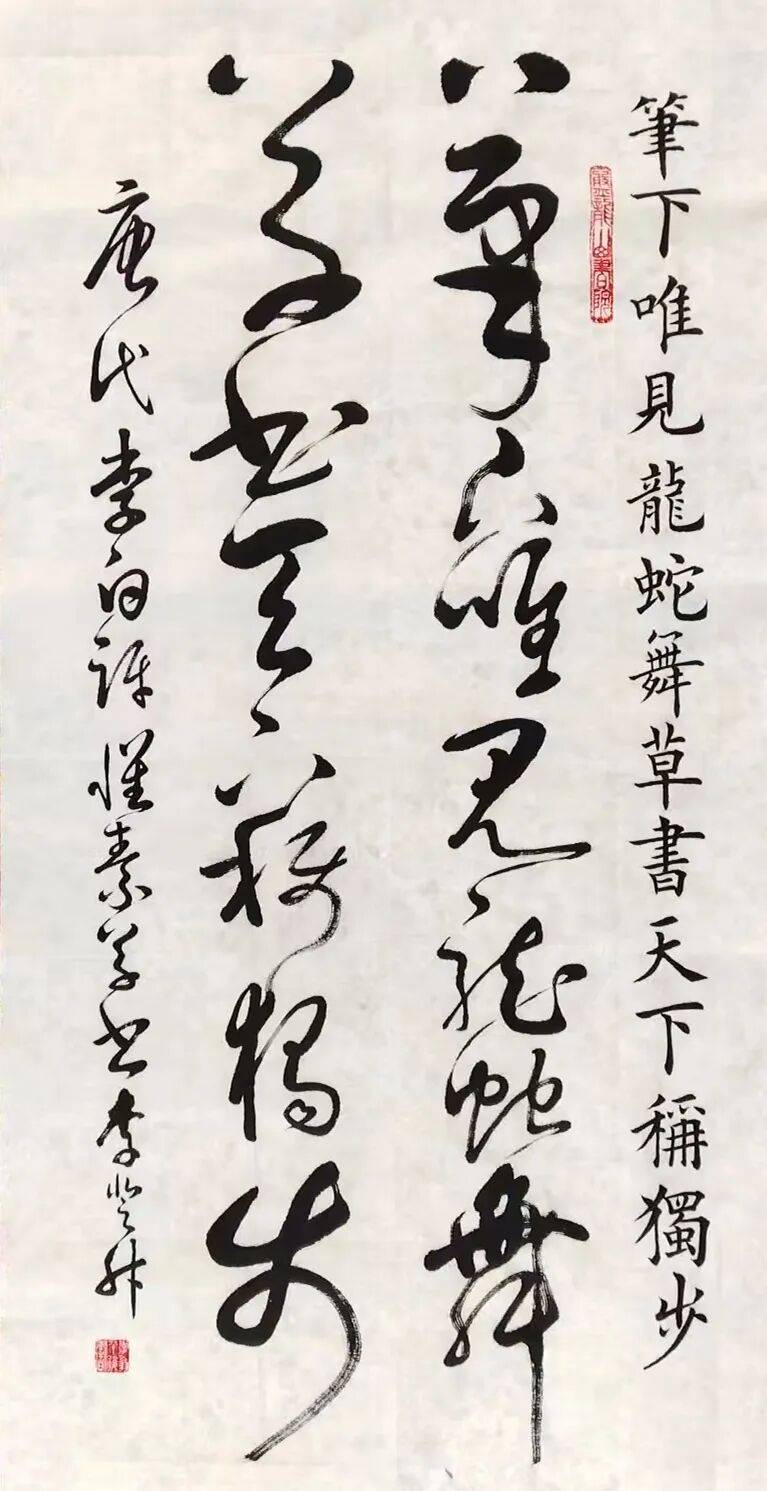 筆下唯見龍蛇舞草書天下稱獨步
筆下唯見龍蛇舞
草書天下稱獨步
唐代李白評懷素草書李登舟